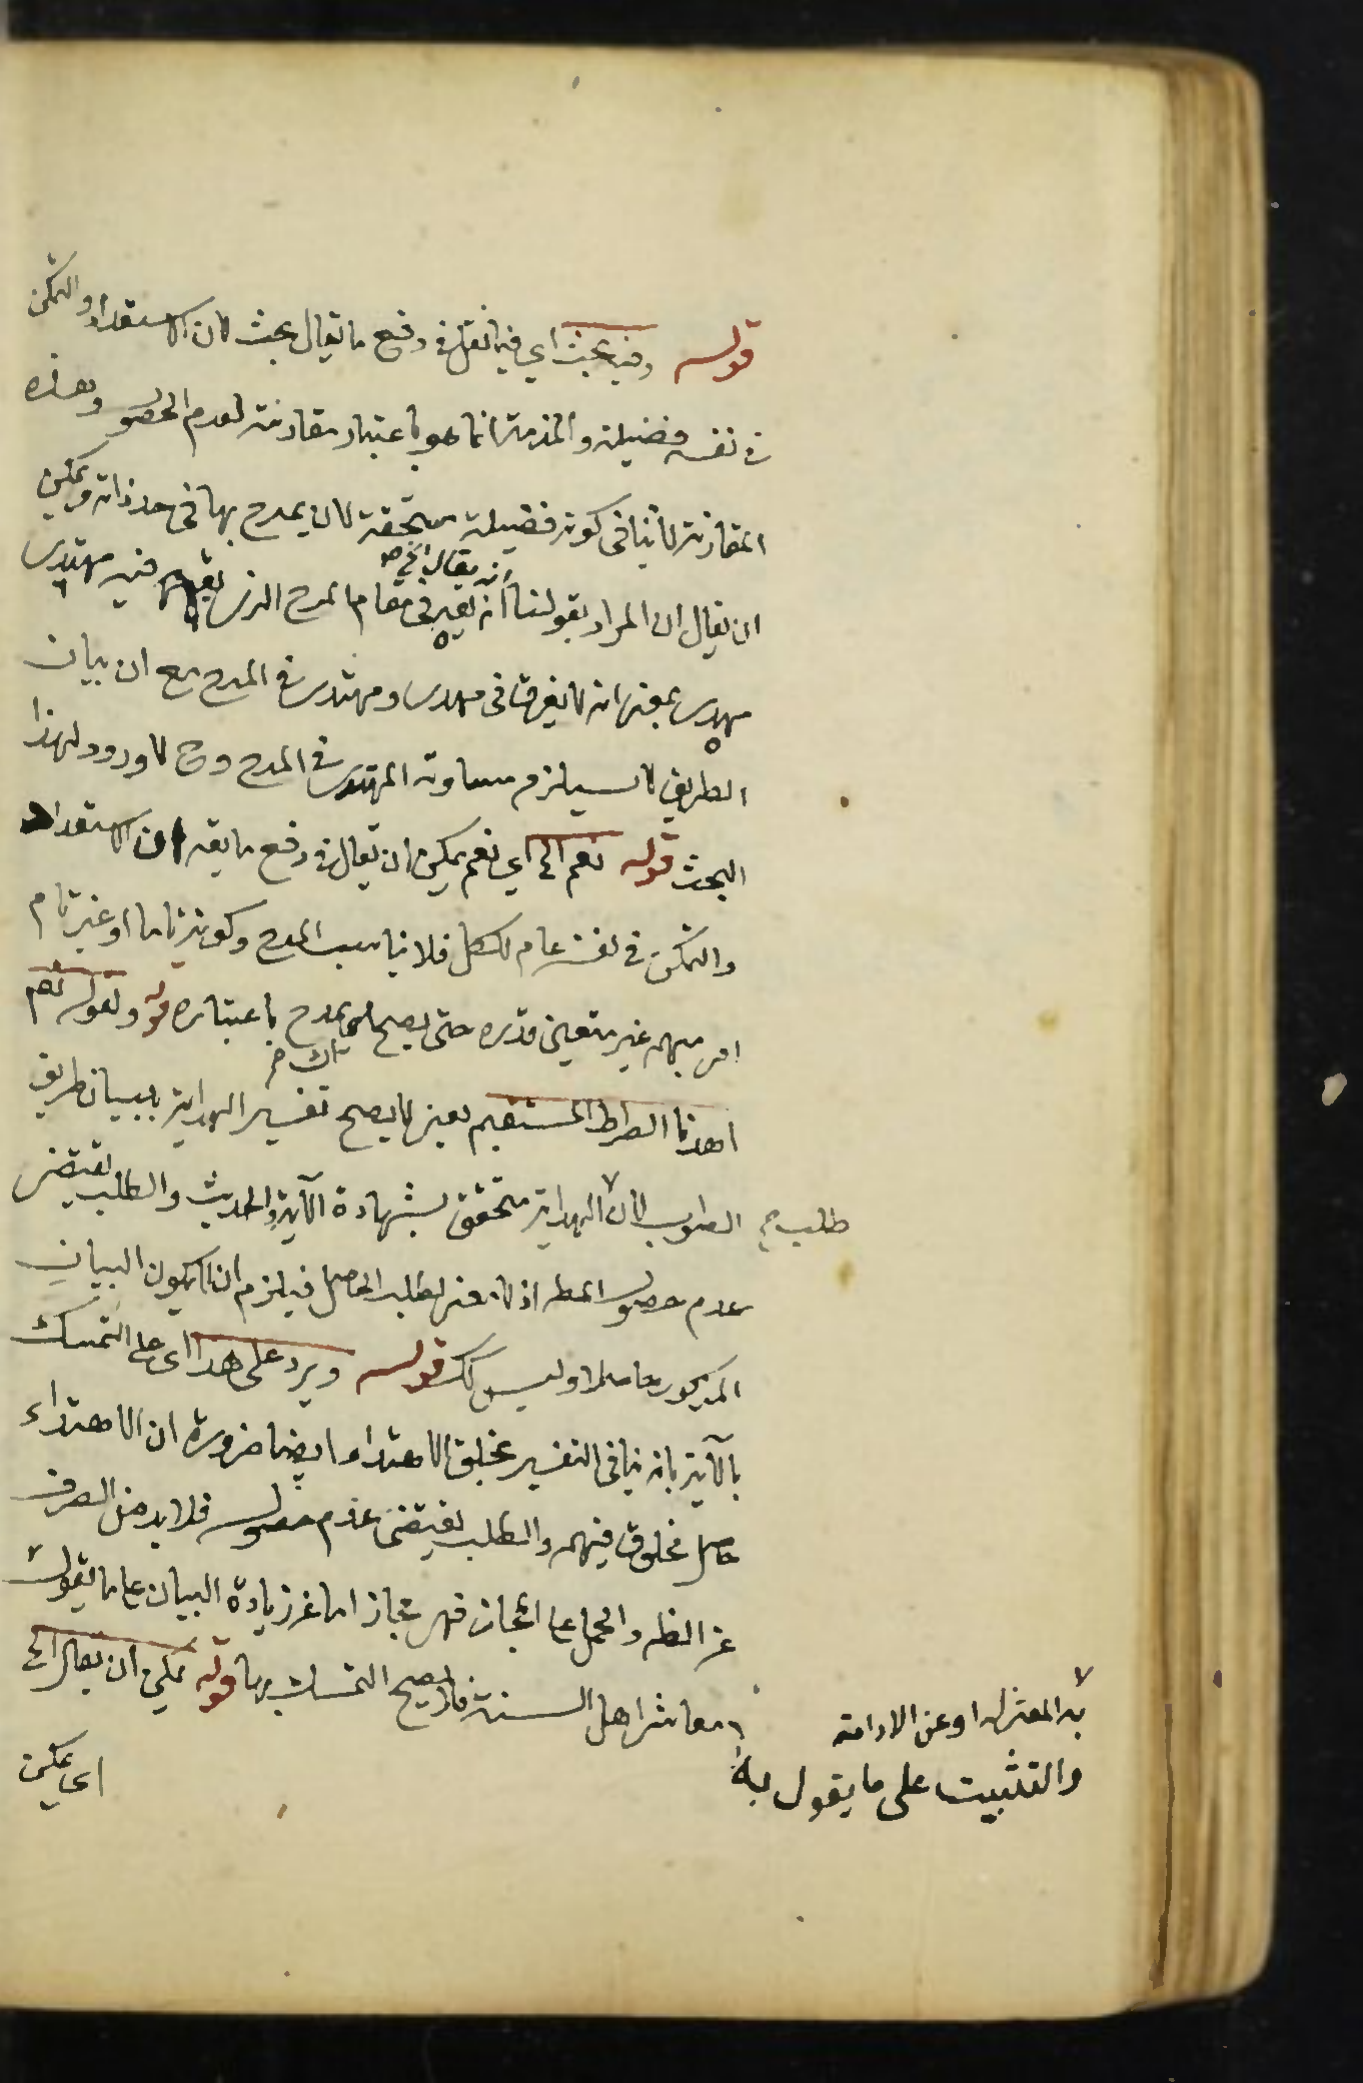 قوله وفيه بحث اي فيما نقل في دفع ما يقال بحث لان الاستعداد والتمكن
في نفسه فضيلة والمذمة انما هو باعتبار مقارنته لعدم الحصول وهذه
المقارنة لا تنافي كونه فضيلة مستحقة لان يمدح بها في حد ذاته ويمكن
ان يقال ان المراد بقولنا انه يقال في مقام المدح الذي فيه مهتدي
مهدي بمعنى انه لا يفرق في مهدي ومهتدي في المدح مع ان بيان
الطريق لا يستلزم مساوته المهتدي في المدح وح لا ورود لهذا
البحث قوله نعم الخ اي نعم يمكن ان يقال في دفع ما يقه ان الاستعداد
والتمكن في نفسه عام للكل فلا يناسب المدح وكونه تاما او غير تام
امر مبهم غير متعين قدره حتى يصح المدح باعتباره قوله وبقوله نعم
اهدنا الصراط المستقيم يعني لا يصح تفسير الهداية ببيان طريق
الصواب لان طلب الهداية متحقق بشهادة الآية والحديث والطلب يقتضي
عدم حصول المط اذ لا معنى لطلب الحاصل فيلزم ان لا يكون البيان
المذكور حاصلا وليس كك قوله ويرد على هذا اي على التمسك
بالآية بانه ينافي التفسير بخلق الاهتداء ايضا ضرورة ان الاهتداء
حاصل مخلوق فيهم والطلب يقتضي عدم حصوله فلا بد من الصرف
عن الظ والحمل على المجاز فهو مجاز اما عن زيادة البيان على ما يقول
به المعتزلة او عن الادامة
والتثبيت على ما يقول به
معاشر اهل السنة فلا يصح التمسك بها قوله يمكن ان يقال الخ
اي يمكن